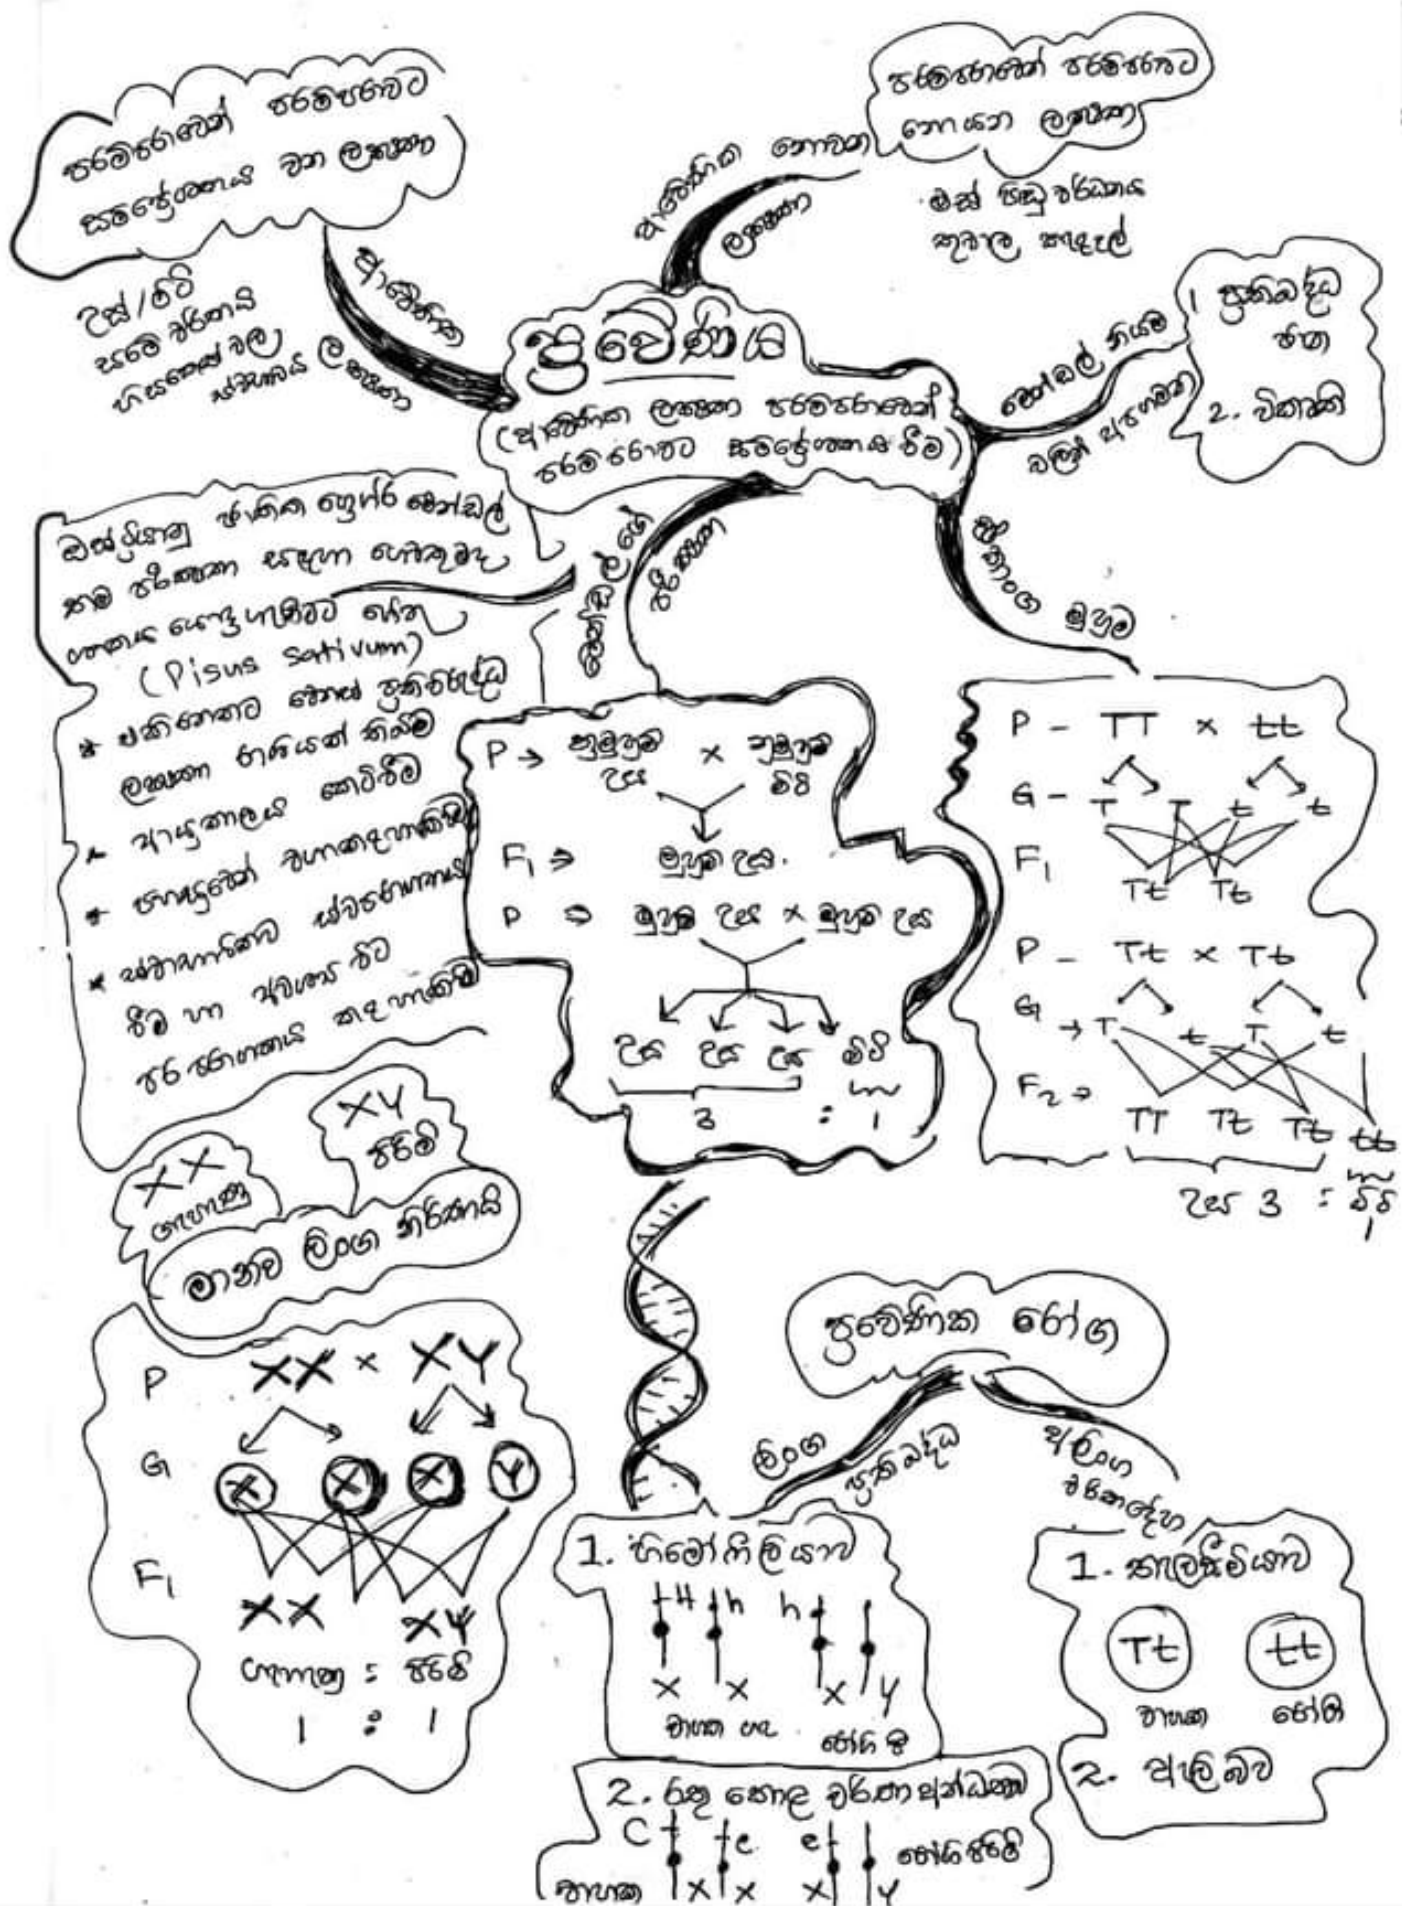 පරම්පරාවෙන් පරම්පරාවට
සම්ප්‍රේශනය වන ලක්ෂණ
ආවේණික
ලක්ෂණ
උස්/මිටි
සමේ වර්ණය
හිසකෙස් වල
ස්වභාවය
ආවේණික නොවන
ලක්ෂණ
පරම්පරාවෙන් පරම්පරාවට
නොයන ලක්ෂණ
මස් පිඬු වර්ධනය
තුවාල කැළැල්
ප්‍රවේණිය
(ආවේණික ලක්ෂණ පරම්පරාවෙන්
පරම්පරාවට සම්ප්‍රේශනය වීම)
මෙන්ඩල් නියම
වලින් අපගමනය
1 ප්‍රතිබද්ධ
ජාන
2. විකෘති
මෙන්ඩල්ගේ
පරීක්ෂණ
ඒකාංග මුහුම
ඔස්ට්‍රියානු ජාතික ග්‍රෙගර් මෙන්ඩල්
තම පරීක්ෂණ සඳහා ගෙවතුමෑ
ශාකය යොදාගැනීමට හේතු
(Pisus sativum)
* එකිනෙකට වෙනස් ප්‍රතිවිරුද්ධ
ලක්ෂණ රාශියක් තිබීම
* ආයුකාලය කෙටිවීම
* පහසුවෙන් වගාකළහැකිවීම
* ස්වාභාවිකව ස්වපරාගනය
වීම හා අවශ්‍ය විට
පර පරාගනය කළ හැකිවීම
P → නුමුහුම් × නුමුහුම්
උස මිටි
F₁ ⇒ මුහුම් උස.
P ⇒ මුහුම් උස × මුහුම් උස
උස උස උස මිටි
3 : 1
P – TT × tt
G – T T t t
F₁
Tt Tt
P – Tt × Tt
G → T t T t
F₂ →
TT Tt Tt tt
උස 3 : මිටි
1
XX
ගැහැණු
XY
පිරිමි
මානව ලිංග නිර්ණය
P XX × XY
G X X X Y
F₁
XX XY
ගැහැණු : පිරිමි
1 : 1
ප්‍රවේණික රෝග
ලිංග
ප්‍රතිබද්ධ
අලිංග
වර්ණදේහ
1. හිමෝෆීලියාව
H h h
X X X Y
වාහක ගැ. රෝගී පි
2. රතු කොළ වර්ණ අන්ධතාව
C c c රෝගී පිරිමි
වාහක X X X Y
1. තැලසීමියාව
Tt tt
වාහක රෝගී
2. ඇලි බව